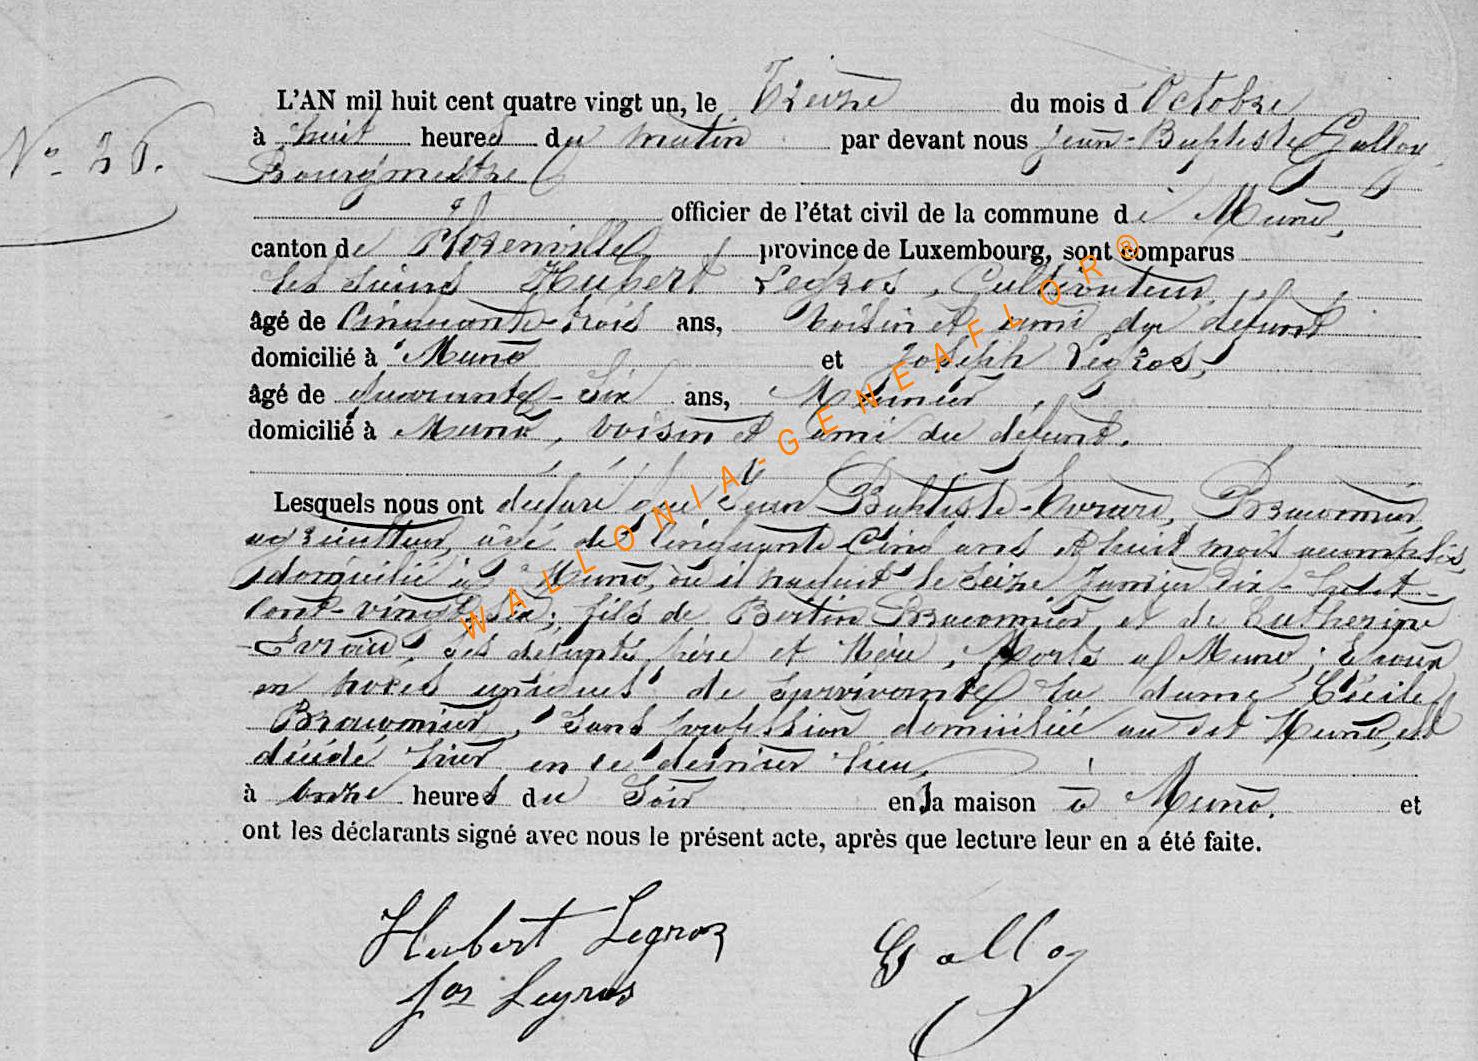 L'AN mil huit cent quatre vingt un, le Treize du mois d'Octobre
No 26. à huit heures du matin par devant nous Jean-Baptiste Galloy
Bourgmestre
officier de l'état civil de la commune de Muno,
canton de Florenville province de Luxembourg, sont comparus
les sieurs Hubert Legros, Cultivateur,
âgé de Cinquante-trois ans, voisin et ami du défunt
domicilié à Muno et Joseph Legros,
âgé de quarante-six ans, Meunier,
domicilié à Muno, voisin et ami du défunt.
Lesquels nous ont déclaré que Jean Baptiste-Evrard, Braconnier,
agriculteur, âgé de Cinquante Cinq ans et huit mois accomplis,
domicilié à Muno, où il naquit le seize Janvier Dix-huit-
Cent-vingt Six; fils de Bertin Braconnier et de Catherine
Evrard, ses défunts père et Mère, Morts à Muno; Epoux
en noces uniques de survivante la dame Cécile
Braconnier, Sans profession domiciliée au dit Muno, est
décédé hier en ce dernier lieu,
à onze heures du Soir en la maison à Muno. et
ont les déclarants signé avec nous le présent acte, après que lecture leur en a été faite.
Hubert Legros Galloy
Jos Legros
WALLONIA-GENEAFLOR®